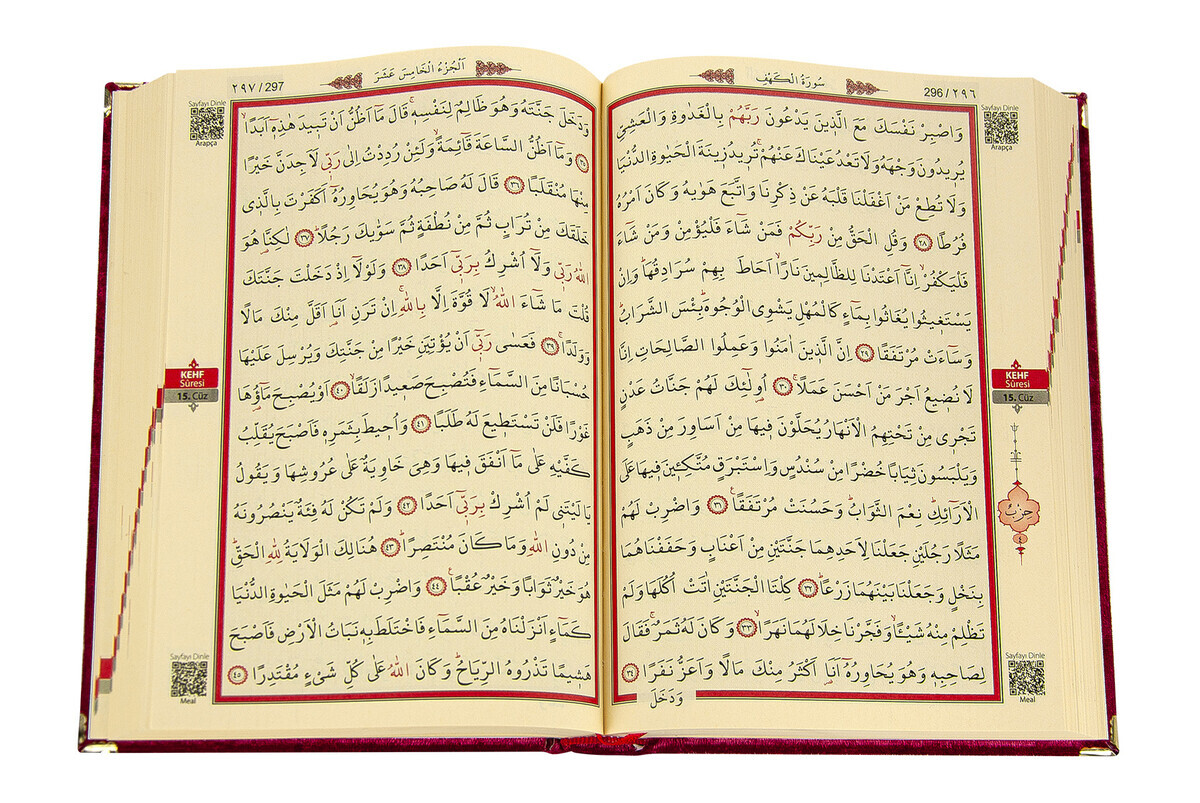 سُورَةُ الْكَهْفِ
296 / ٢٩٦
Sayfayı Dinle
Arapça
وَاصْبِرْ نَفْسَكَ مَعَ الَّذٖينَ يَدْعُونَ رَبَّهُمْ بِالْغَدٰوةِ وَالْعَشِيِّ
يُرٖيدُونَ وَجْهَهُ وَلَا تَعْدُ عَيْنَاكَ عَنْهُمْۚ تُرٖيدُ زٖينَةَ الْحَيٰوةِ الدُّنْيَا
وَلَا تُطِعْ مَنْ اَغْفَلْنَا قَلْبَهُ عَنْ ذِكْرِنَا وَاتَّبَعَ هَوٰيهُ وَكَانَ اَمْرُهُ
فُرُطًا ﴿٢٨﴾ وَقُلِ الْحَقُّ مِنْ رَبِّكُمْ فَمَنْ شَٓاءَ فَلْيُؤْمِنْ وَمَنْ شَٓاءَ
فَلْيَكْفُرْۙ اِنَّٓا اَعْتَدْنَا لِلظَّالِمٖينَ نَارًاۙ اَحَاطَ بِهِمْ سُرَادِقُهَاؕ وَاِنْ
يَسْتَغٖيثُوا يُغَاثُوا بِمَٓاءٍ كَالْمُهْلِ يَشْوِي الْوُجُوهَؕ بِئْسَ الشَّرَابُؕ
وَسَٓاءَتْ مُرْتَفَقًا ﴿٢٩﴾ اِنَّ الَّذٖينَ اٰمَنُوا وَعَمِلُوا الصَّالِحَاتِ اِنَّا
لَا نُضٖيعُ اَجْرَ مَنْ اَحْسَنَ عَمَلًاۚ ﴿٣٠﴾ اُو۬لٰٓئِكَ لَهُمْ جَنَّاتُ عَدْنٍ
تَجْرٖي مِنْ تَحْتِهِمُ الْاَنْهَارُ يُحَلَّوْنَ فٖيهَا مِنْ اَسَاوِرَ مِنْ ذَهَبٍ
وَيَلْبَسُونَ ثِيَابًا خُضْرًا مِنْ سُنْدُسٍ وَاِسْتَبْرَقٍ مُتَّكِـٖٔينَ فٖيهَا عَلَى
الْاَرَٓائِكِؕ نِعْمَ الثَّوَابُؕ وَحَسُنَتْ مُرْتَفَقًاࣖ ﴿٣١﴾ وَاضْرِبْ لَهُمْ
مَثَلًا رَجُلَيْنِ جَعَلْنَا لِاَحَدِهِمَا جَنَّتَيْنِ مِنْ اَعْنَابٍ وَحَفَفْنَاهُمَا
بِنَخْلٍ وَجَعَلْنَا بَيْنَهُمَا زَرْعًاؕ ﴿٣٢﴾ كِلْتَا الْجَنَّتَيْنِ اٰتَتْ اُكُلَهَا وَلَمْ
تَظْلِمْ مِنْهُ شَيْـًٔاۙ وَفَجَّرْنَا خِلَالَهُمَا نَهَرًاۙ ﴿٣٣﴾ وَكَانَ لَهُ ثَمَرٌۚ فَقَالَ
لِصَاحِبِهٖ وَهُوَ يُحَاوِرُهُٓ اَنَا۬ اَكْثَرُ مِنْكَ مَالًا وَاَعَزُّ نَفَرًا ﴿٣٤﴾
وَدَخَلَ
KEHF
Sûresi
15. Cüz
حزب
٤
Sayfayı Dinle
Meal
اَلْجُزْءُ الْخَامِسَ عَشَرَ
٢٩٧ / 297
Sayfayı Dinle
Arapça
وَدَخَلَ جَنَّتَهُ وَهُوَ ظَالِمٌ لِنَفْسِهٖۚ قَالَ مَٓا اَظُنُّ اَنْ تَبٖيدَ هٰذِهٖٓ اَبَدًاۙ
﴿٣٥﴾ وَمَٓا اَظُنُّ السَّاعَةَ قَٓائِمَةًۙ وَلَئِنْ رُدِدْتُ اِلٰى رَبّٖي لَاَجِدَنَّ خَيْرًا
مِنْهَا مُنْقَلَبًا ﴿٣٦﴾ قَالَ لَهُ صَاحِبُهُ وَهُوَ يُحَاوِرُهُٓ اَكَفَرْتَ بِالَّذٖي
خَلَقَكَ مِنْ تُرَابٍ ثُمَّ مِنْ نُطْفَةٍ ثُمَّ سَوّٰيكَ رَجُلًاؕ ﴿٣٧﴾ لٰكِنَّا۬ هُوَ
اللّٰهُ رَبّٖي وَلَٓا اُشْرِكُ بِرَبّٖٓي اَحَدًا ﴿٣٨﴾ وَلَوْلَٓا اِذْ دَخَلْتَ جَنَّتَكَ
قُلْتَ مَا شَٓاءَ اللّٰهُۙ لَا قُوَّةَ اِلَّا بِاللّٰهِۚ اِنْ تَرَنِ اَنَا۬ اَقَلَّ مِنْكَ مَالًا
وَوَلَدًاۚ ﴿٣٩﴾ فَعَسٰى رَبّٖٓي اَنْ يُؤْتِيَنِ خَيْرًا مِنْ جَنَّتِكَ وَيُرْسِلَ عَلَيْهَا
حُسْبَانًا مِنَ السَّمَٓاءِ فَتُصْبِحَ صَعٖيدًا زَلَقًاۙ ﴿٤٠﴾ اَوْ يُصْبِحَ مَٓاؤُ۬هَا
غَوْرًا فَلَنْ تَسْتَطٖيعَ لَهُ طَلَبًا ﴿٤١﴾ وَاُحٖيطَ بِثَمَرِهٖ فَاَصْبَحَ يُقَلِّبُ
كَفَّيْهِ عَلٰى مَٓا اَنْفَقَ فٖيهَا وَهِيَ خَاوِيَةٌ عَلٰى عُرُوشِهَا وَيَقُولُ
يَا لَيْتَنٖي لَمْ اُشْرِكْ بِرَبّٖٓي اَحَدًا ﴿٤٢﴾ وَلَمْ تَكُنْ لَهُ فِئَةٌ يَنْصُرُونَهُ
مِنْ دُونِ اللّٰهِ وَمَا كَانَ مُنْتَصِرًاؕ ﴿٤٣﴾ هُنَالِكَ الْوَلَايَةُ لِلّٰهِ الْحَقِّؕ
هُوَ خَيْرٌ ثَوَابًا وَخَيْرٌ عُقْبًاࣖ ﴿٤٤﴾ وَاضْرِبْ لَهُمْ مَثَلَ الْحَيٰوةِ الدُّنْيَا
كَمَٓاءٍ اَنْزَلْنَاهُ مِنَ السَّمَٓاءِ فَاخْتَلَطَ بِهٖ نَبَاتُ الْاَرْضِ فَاَصْبَحَ
هَشٖيمًا تَذْرُوهُ الرِّيَاحُؕ وَكَانَ اللّٰهُ عَلٰى كُلِّ شَيْءٍ مُقْتَدِرًا ﴿٤٥﴾
KEHF
Sûresi
15. Cüz
Sayfayı Dinle
Meal